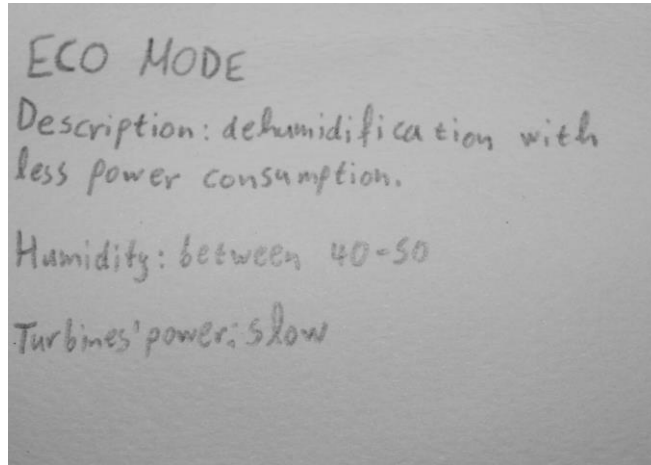 ECO MODE
Description: dehumidification with
less power consumption.
Humidity: between 40-50
Turbines' power: slow